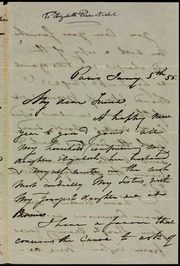 To Elizabeth Pease Nichol
Paris Jany 5th 55.
My dear Friend
A happy New
year to you & yours! all
my household composing my
daughter Elizabeth, her husband
& myself unite in the wish
most cordially. My Sisters with
my youngest daughter are at
Rome.
I have a favour that
concerns the Cause to ask of